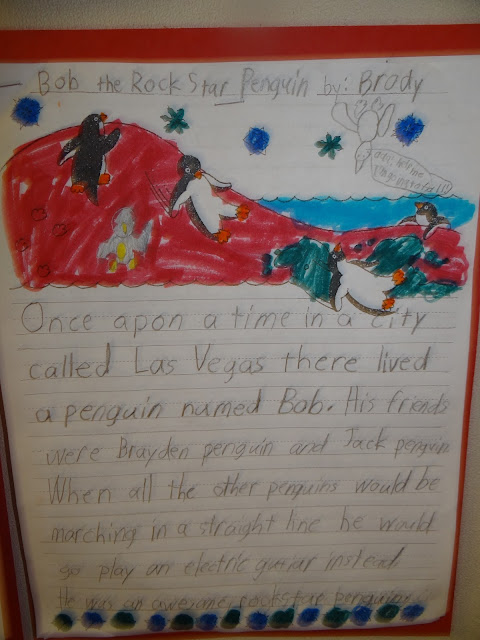 Bob the Rock Star Penguin by: Brody
Once apon a time in a city
called Las Vegas there lived
a penguin named Bob. His friends
were Brayden penguin and Jack penguin.
When all the other penguins would be
marching in a straight line he would
go play an electric guitar instead.
He was an awesome rockstar penguin.